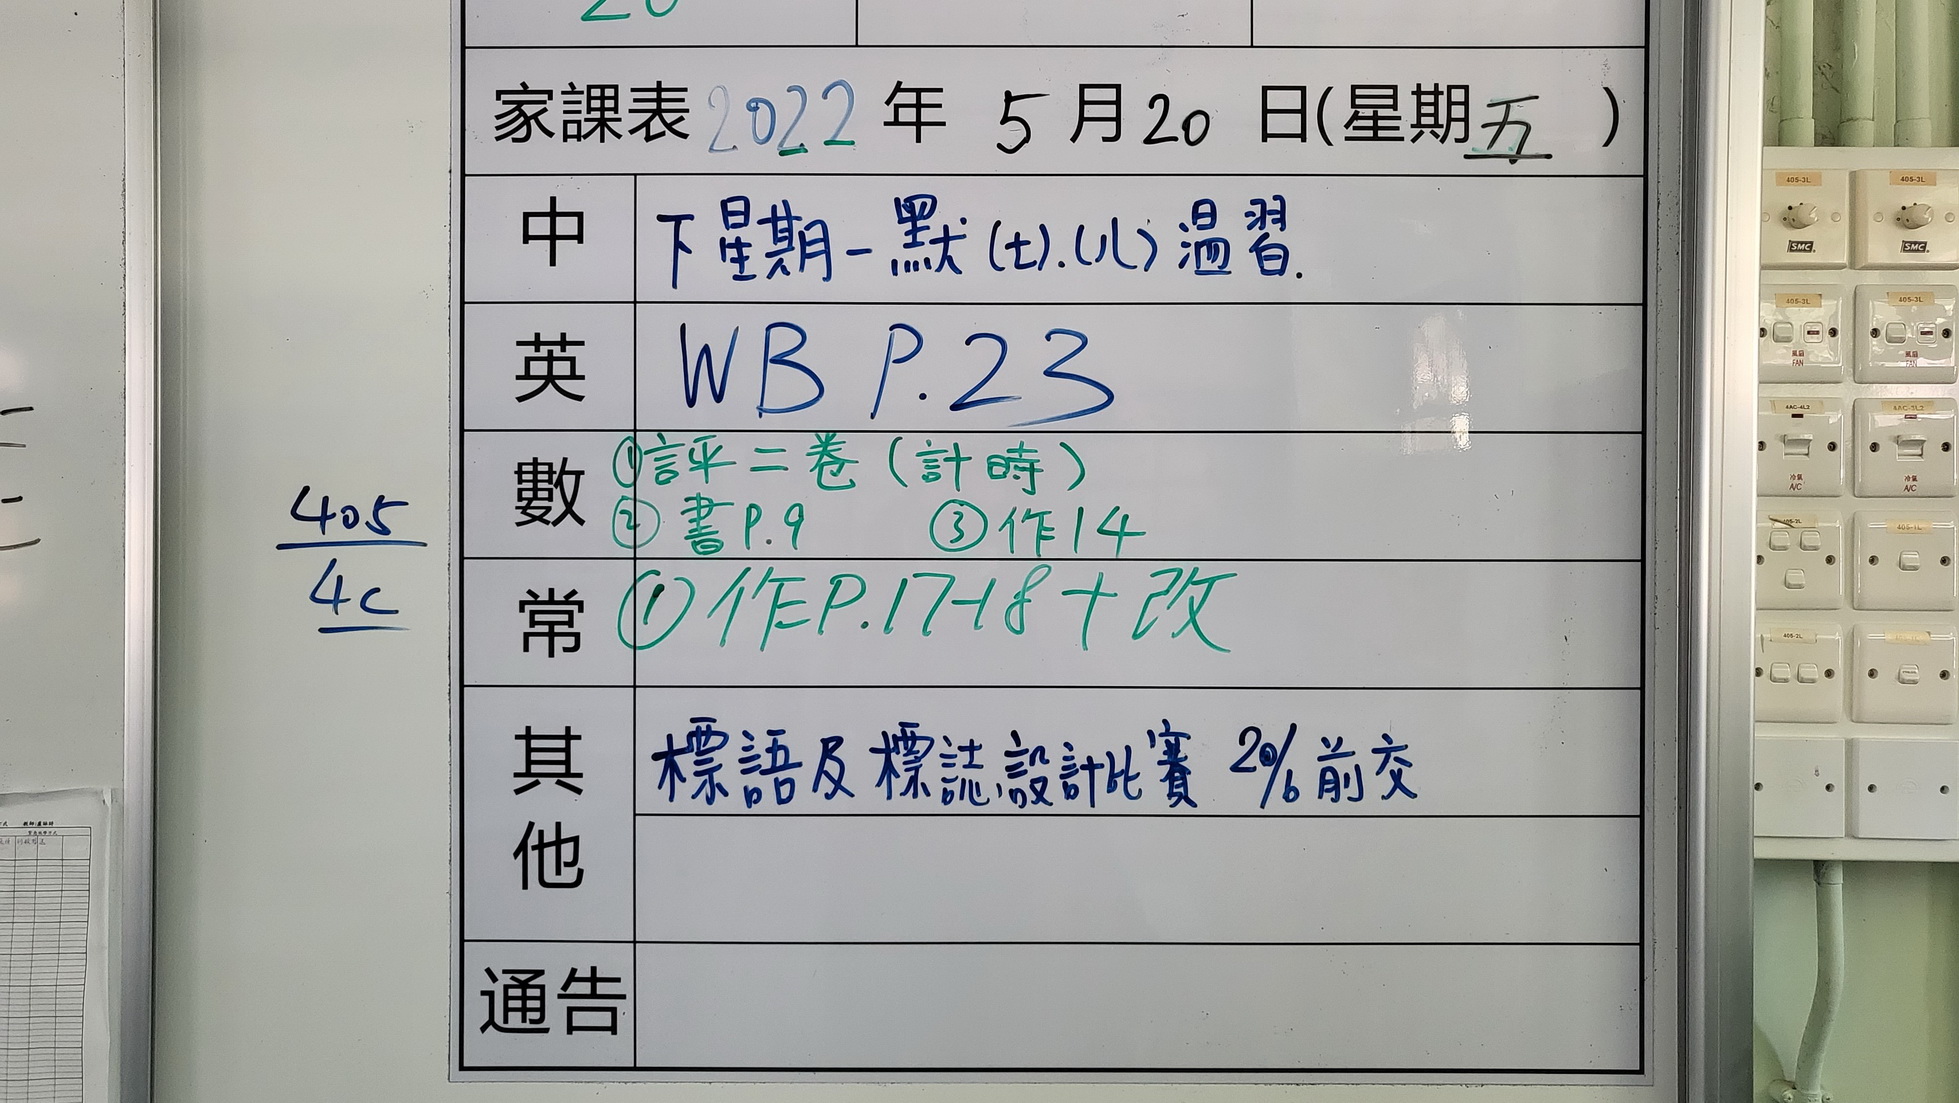 20
家課表 2022 年 5 月 20 日(星期五)
中 下星期一默(七).(八)溫習.
英 WB P.23
數 ①評平二卷(計時)
②書P.9 ③作14
常 ①作P.17-18+改
其他 標語及標誌設計比賽 20/6前交
通告
405
4C
405-3L 405-3L
SMC SMC
405-3L 405-3L
風扇 風扇
FAN FAN
4AC-4L2
冷氣 冷氣
A/C A/C
405-2L